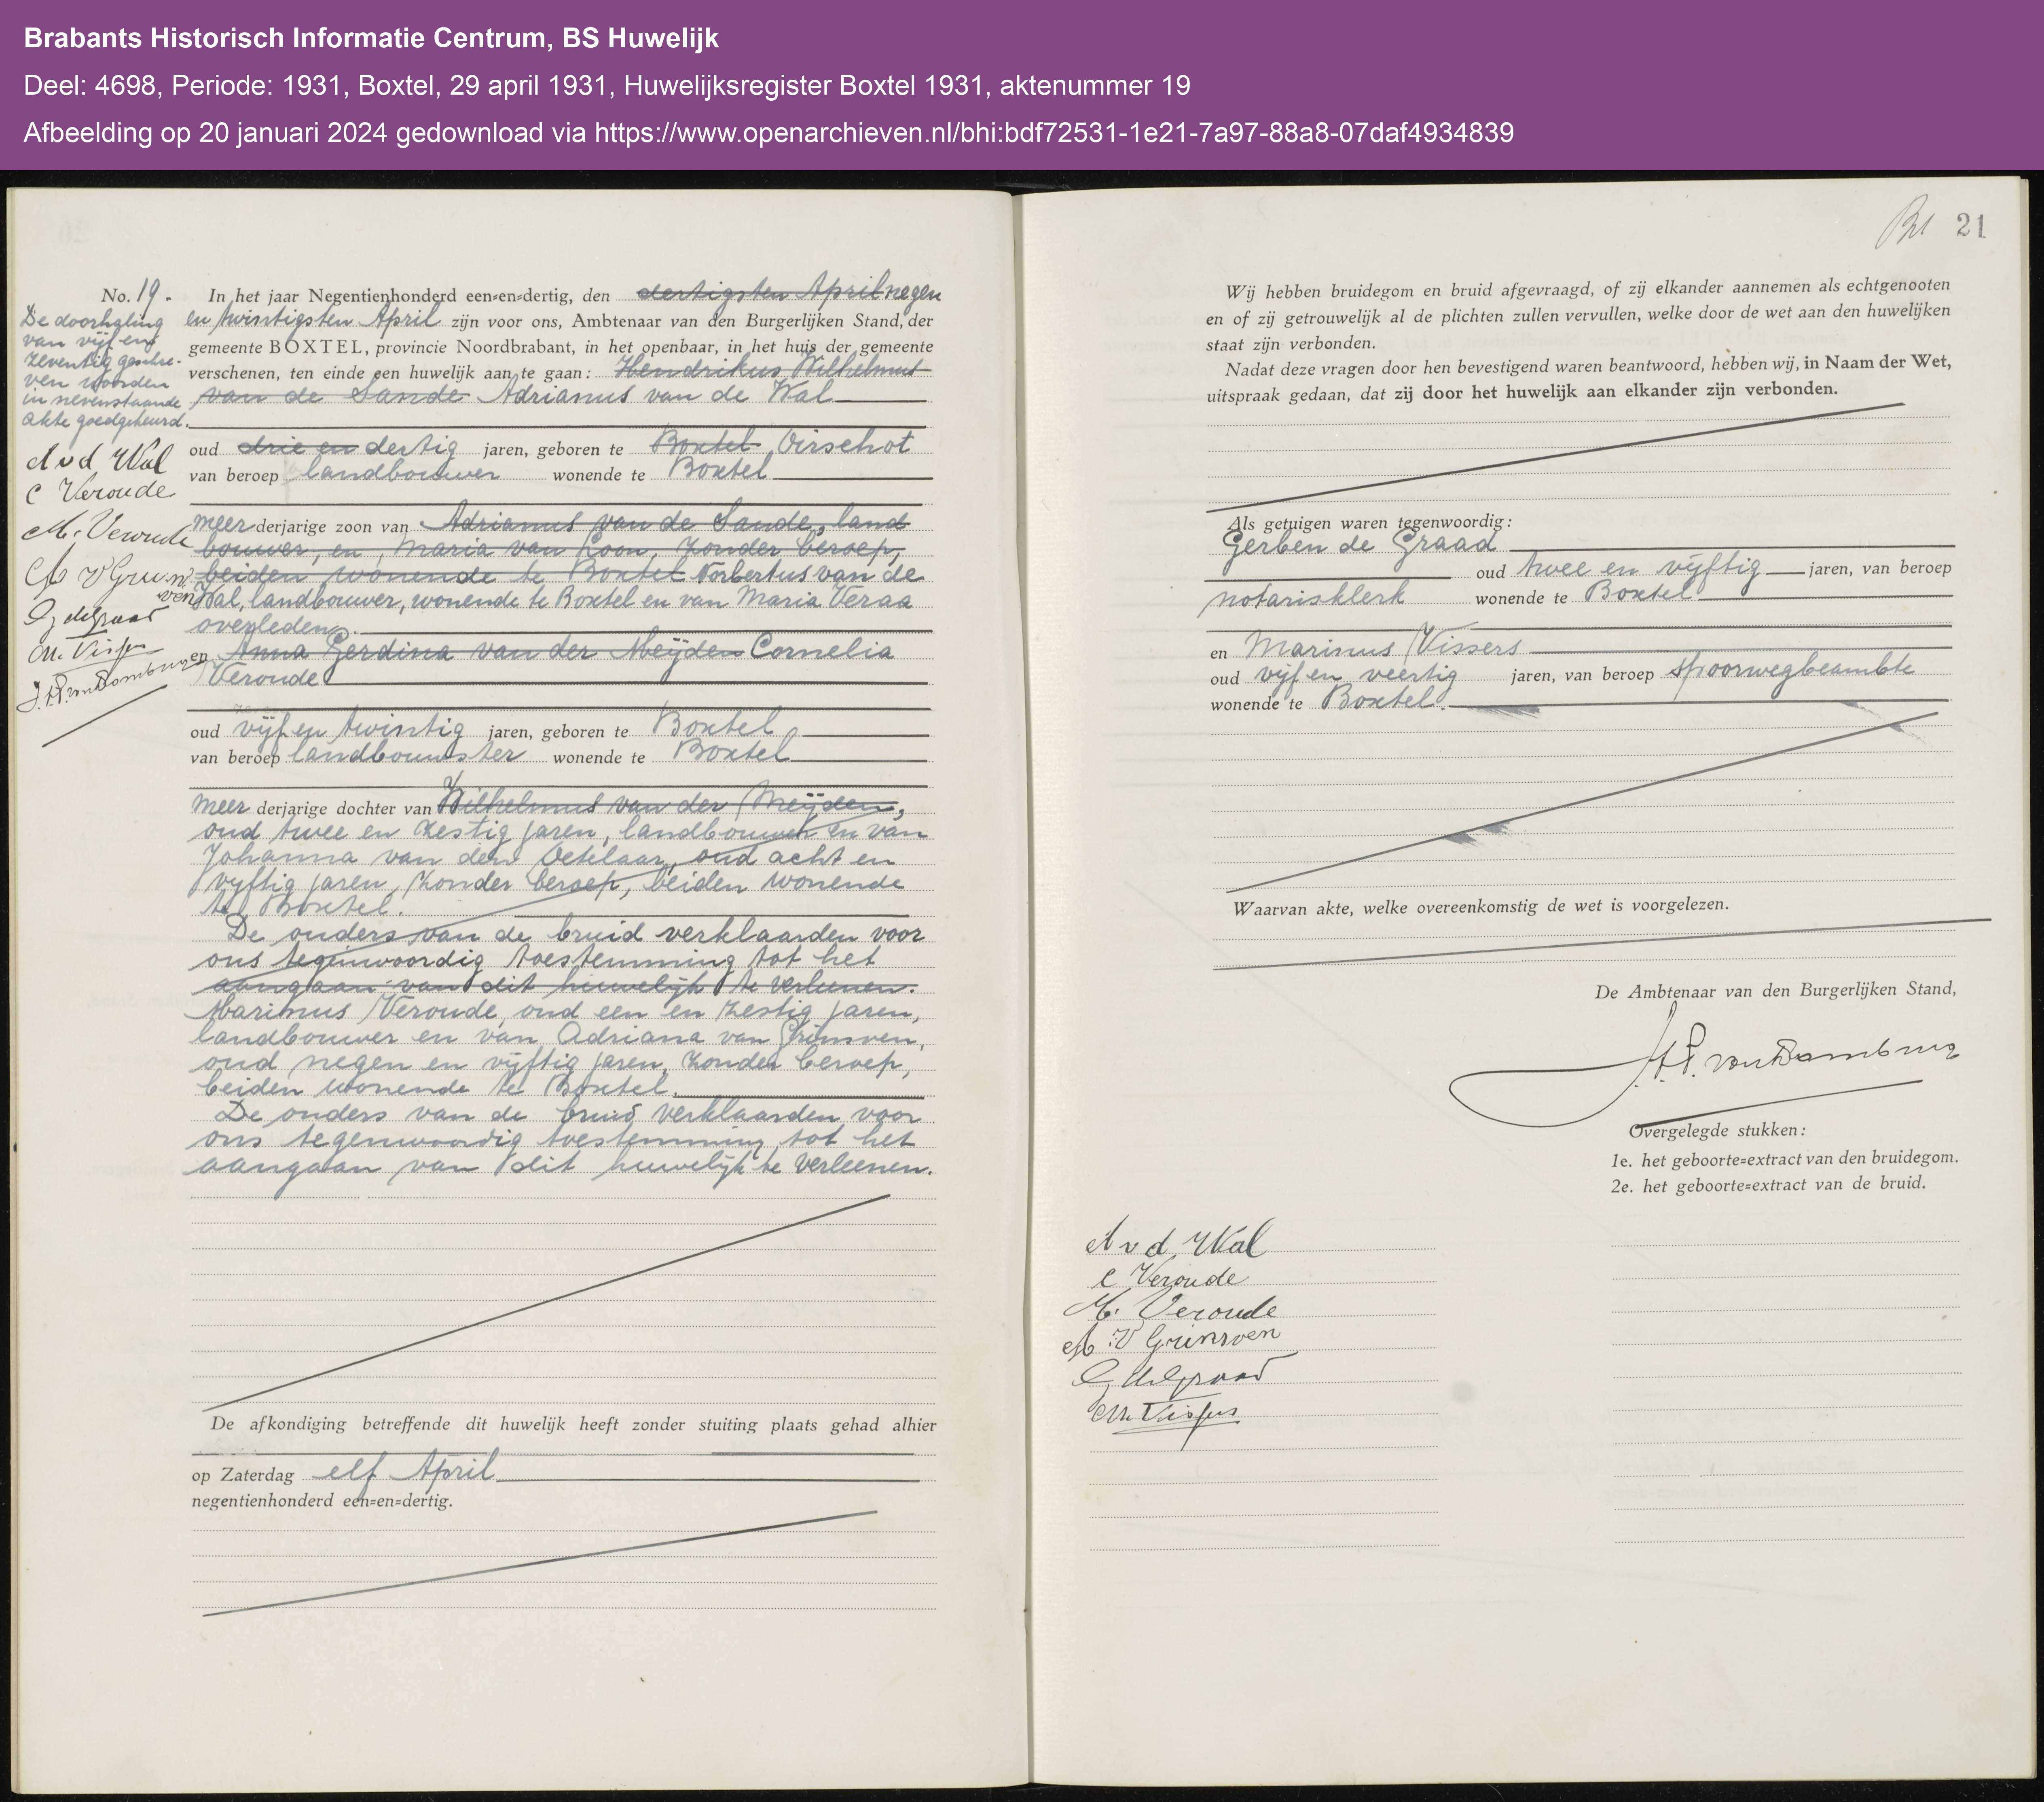 Brabants Historisch Informatie Centrum, BS Huwelijk
Deel: 4698, Periode: 1931, Boxtel, 29 april 1931, Huwelijksregister Boxtel 1931, aktenummer 19
Afbeelding op 20 januari 2024 gedownload via https://www.openarchieven.nl/bhi:bdf72531-1e21-7a97-88a8-07daf4934839
No. 19.
De doorhaling
van vijf en
zeventig geschre-
ven woorden
in nevenstaande
akte goedgekeurd.
A v d Wal
C Veroude
M. Veroude
A v Grinsven
G de Graad
M. Vissers
In het jaar Negentienhonderd een=en=dertig, den dertigsten April negen
en twintigsten April zijn voor ons, Ambtenaar van den Burgerlijken Stand, der
gemeente BOXTEL, provincie Noordbrabant, in het openbaar, in het huis der gemeente
verschenen, ten einde een huwelijk aan te gaan: Hendrikus Wilhelmus
van de Sande Adrianus van de Wal
oud drie en dertig jaren, geboren te Boxtel Oirschot
van beroep landbouwer wonende te Boxtel
meer derjarige zoon van Adrianus van de Sande, land
bouwer, en Maria van Loon, zonder beroep,
beiden wonende te Boxtel Norbertus van de
Wal, landbouwer, wonende te Boxtel en van Maria Veraa
overleden.
en Anna Gerdina van der Meijden Cornelia
Veroude
oud vijf en twintig jaren, geboren te Boxtel
van beroep landbouwster wonende te Boxtel
meer derjarige dochter van Wilhelmus van der Meijden,
oud twee en zestig jaren, landbouwer en van
Johanna van den Oetelaar, oud acht en
vijftig jaren, zonder beroep, beiden wonende
te Boxtel.
De ouders van de bruid verklaarden voor
ons tegenwoordig toestemming tot het
aangaan van dit huwelijk te verleenen.
Marinus Veroude, oud een en zestig jaren,
landbouwer en van Adriana van Grinsven,
oud negen en vijftig jaren, zonder beroep,
beiden wonende te Boxtel.
De ouders van de bruid verklaarden voor
ons tegenwoordig toestemming tot het
aangaan van dit huwelijk te verleenen.
De afkondiging betreffende dit huwelijk heeft zonder stuiting plaats gehad alhier
op Zaterdag elf April
negentienhonderd een=en=dertig.
21
Wij hebben bruidegom en bruid afgevraagd, of zij elkander aannemen als echtgenooten
en of zij getrouwelijk al de plichten zullen vervullen, welke door de wet aan den huwelijken
staat zijn verbonden.
Nadat deze vragen door hen bevestigend waren beantwoord, hebben wij, in Naam der Wet,
uitspraak gedaan, dat zij door het huwelijk aan elkander zijn verbonden.
Als getuigen waren tegenwoordig:
Gerben de Graad
oud twee en vijftig jaren, van beroep
notarisklerk wonende te Boxtel
en Marinus Vissers
oud vijf en veertig jaren, van beroep spoorwegbeambte
wonende te Boxtel.
Waarvan akte, welke overeenkomstig de wet is voorgelezen.
De Ambtenaar van den Burgerlijken Stand,
Overgelegde stukken:
1e. het geboorte=extract van den bruidegom.
2e. het geboorte=extract van de bruid.
A v d Wal
C Veroude
M. Veroude
A v Grinsven
G de Graad
M. Vissers